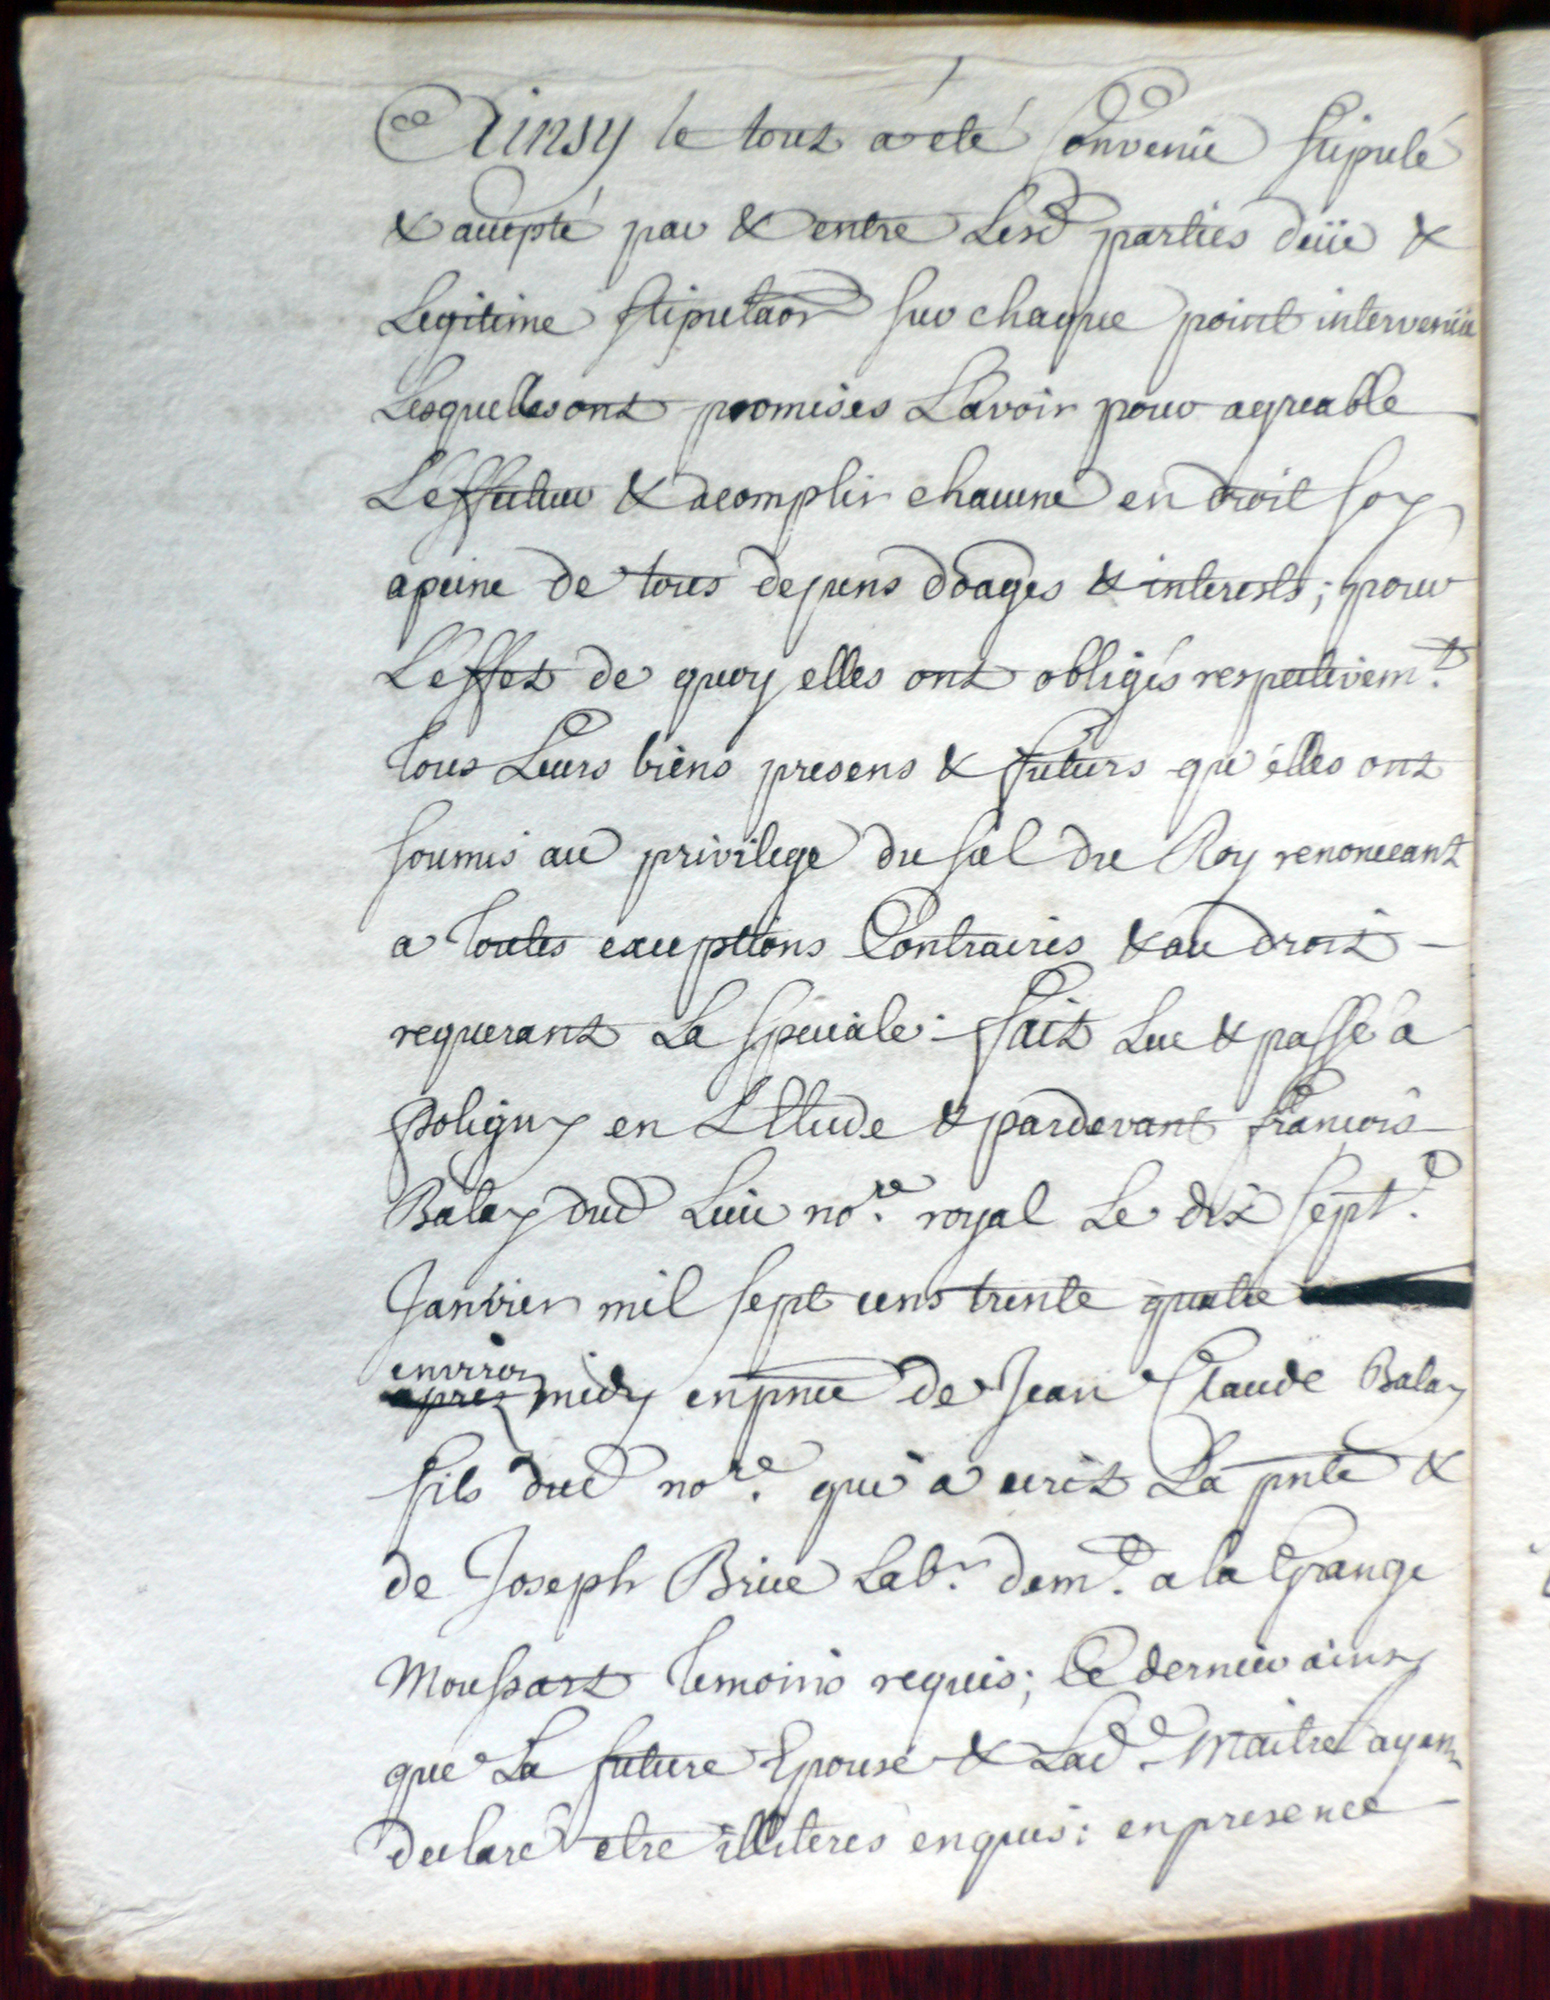 Ainsy le tout a été Convenü stipulé
& accepté par & entre Lesd parties deüe &
Legitime stipulaon sur chaque point intervenüe
Lesquelles ont promises L'avoir pour agreable
L'effectuer & acomplir chacune en droit soy
a peine de tous depens doages & interests; pour
L'effet de quoy elles ont obligés respectivem.t
Tous Leurs biens presens & futurs qu'elles ont
soumis au privilege du scel du Roy renonceant
a Toutes exceptions Contraires & au droit -
requerant La speciale: fait Lue & passé a
Poligny en L'Etude & pardevant francois
Balay dud Lieu no.re royal Le dix sept.e
Janvier mil sept cens trente quatre
environ
apres midy en pnce de Jean Claude Balay
fils dud no.re qui a ecrit La pnte &
de Joseph Brice Lab.r dem.t a la Grange
Moussart Temoins requis; Ce dernier ainsy
que La future Epouse & Lad.e Maitre ayan
declaré etre illiteres enquis: en presence